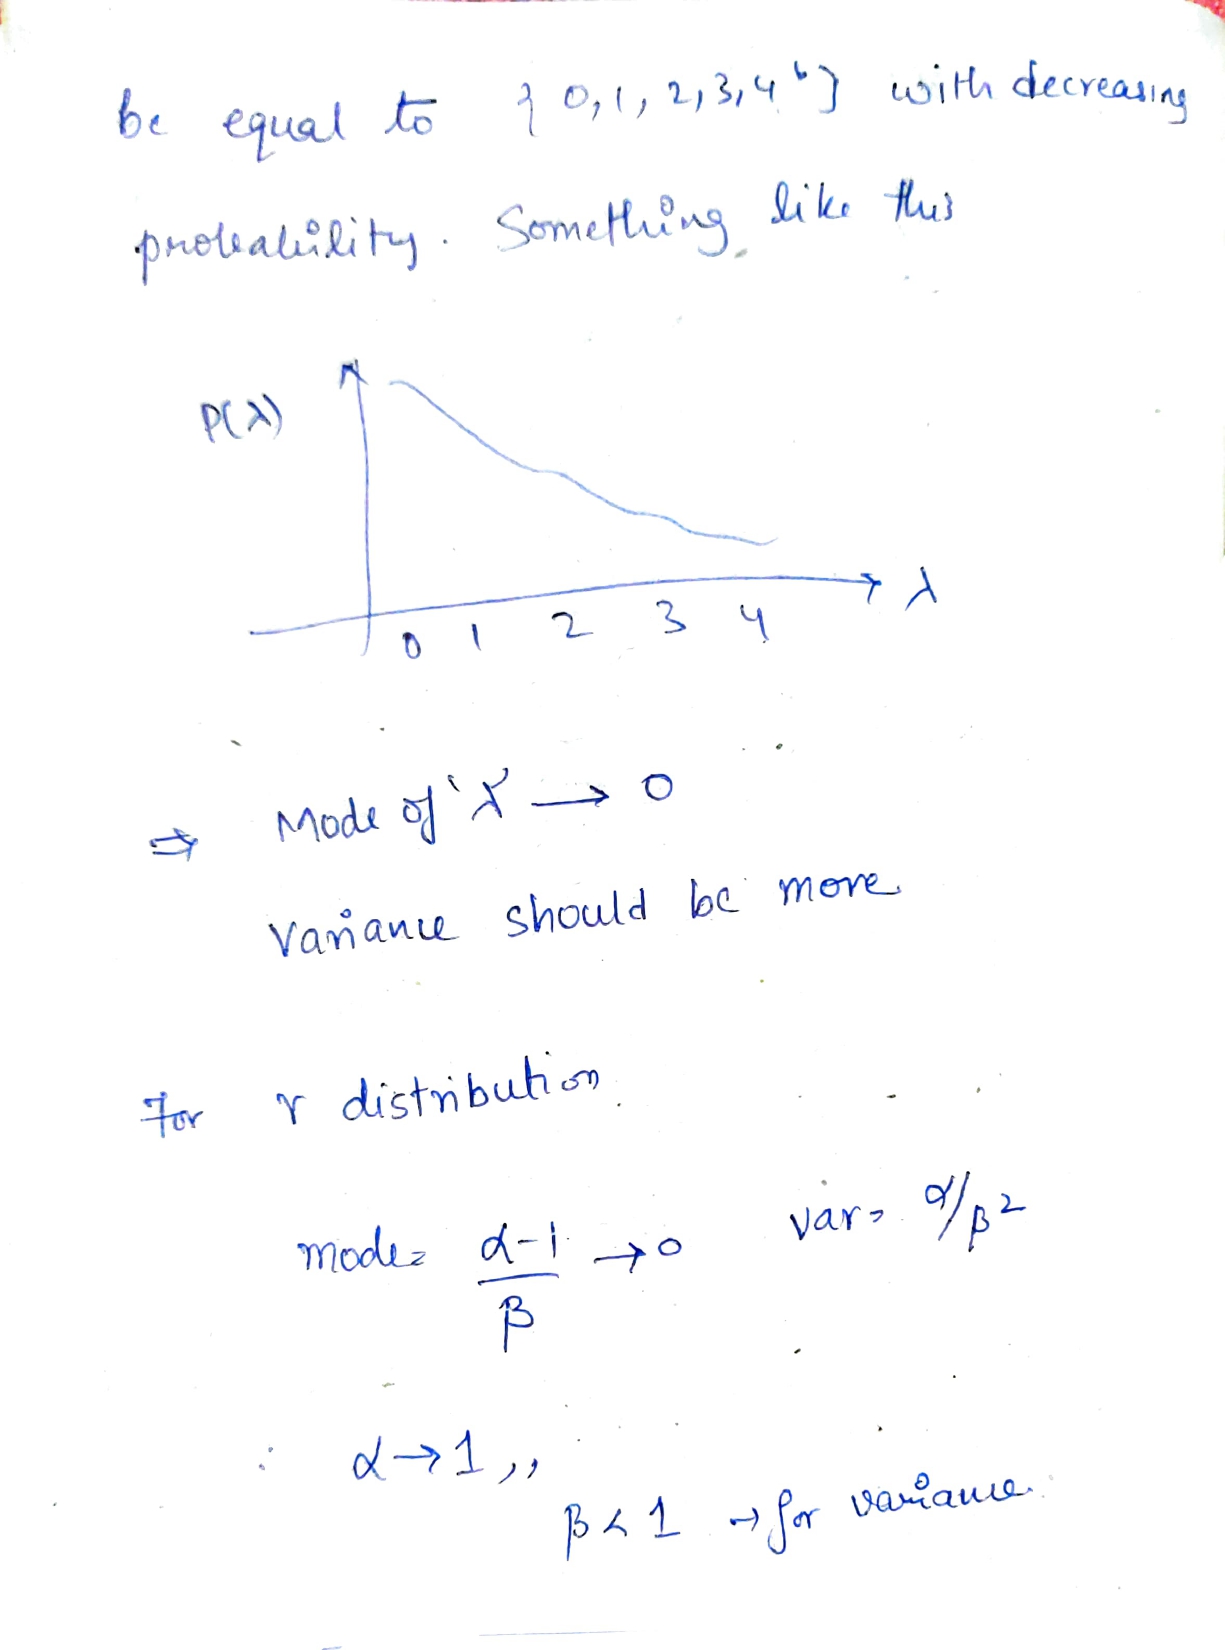 be equal to {0,1,2,3,4 } with decreasing
probability. Something like this
P(λ)
λ
0 1 2 3 4
⇒ Mode of 'λ' → 0
Variance should be more
For γ distribution.
mode = α-1/β → 0 var = α/β²
∴ α → 1,,
β < 1 → for variance.